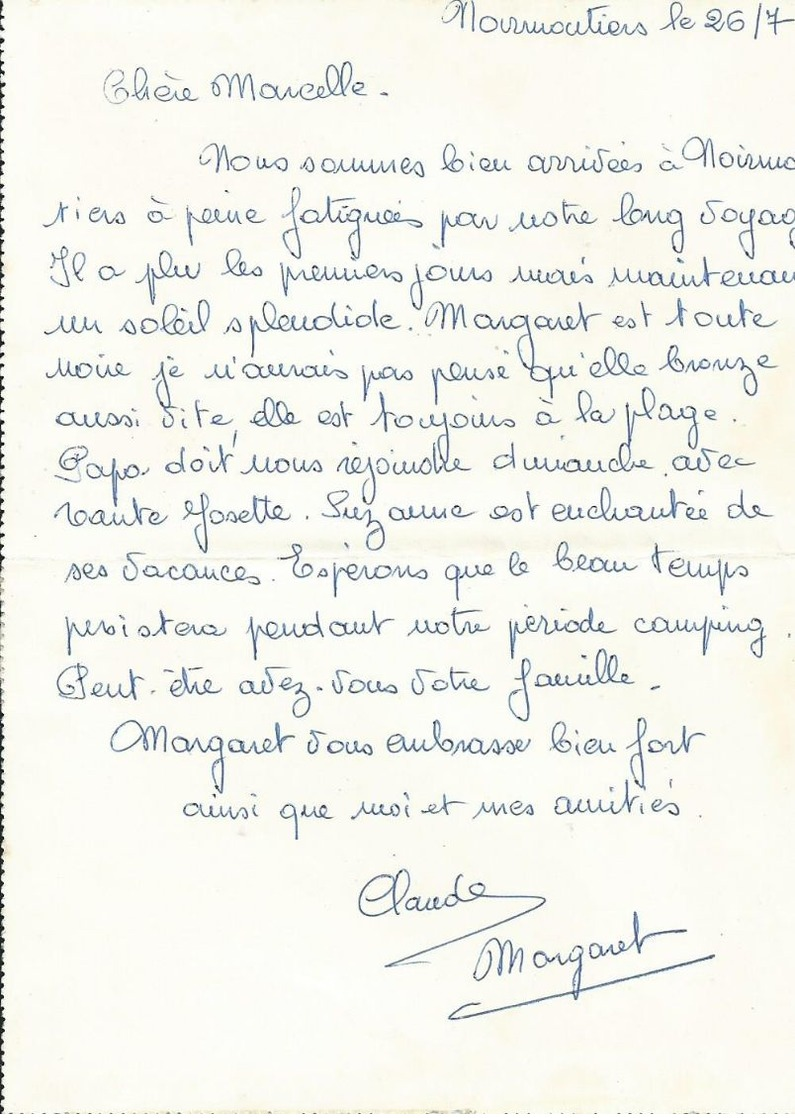 Noirmoutiers le 26/7
Chère Marcelle.
Nous sommes bien arrivées à Noirmo
tiers à peine fatiguées par notre long voyag
Il a plu les premiers jours mais maintenan
un soleil splendide. Margaret est toute
noire je n'aurais pas pensé qu'elle bronze
aussi vite, elle est toujours à la plage.
Papa doit nous rejoindre dimanche avec
tante Josette. Suzanne est enchantée de
ses vacances. Espèrons que le beau temps
persistera pendant notre période camping.
Peut-être avez-vous votre famille.
Margaret vous embrasse bien fort
ainsi que moi et mes amitiés.
Claude
Margaret